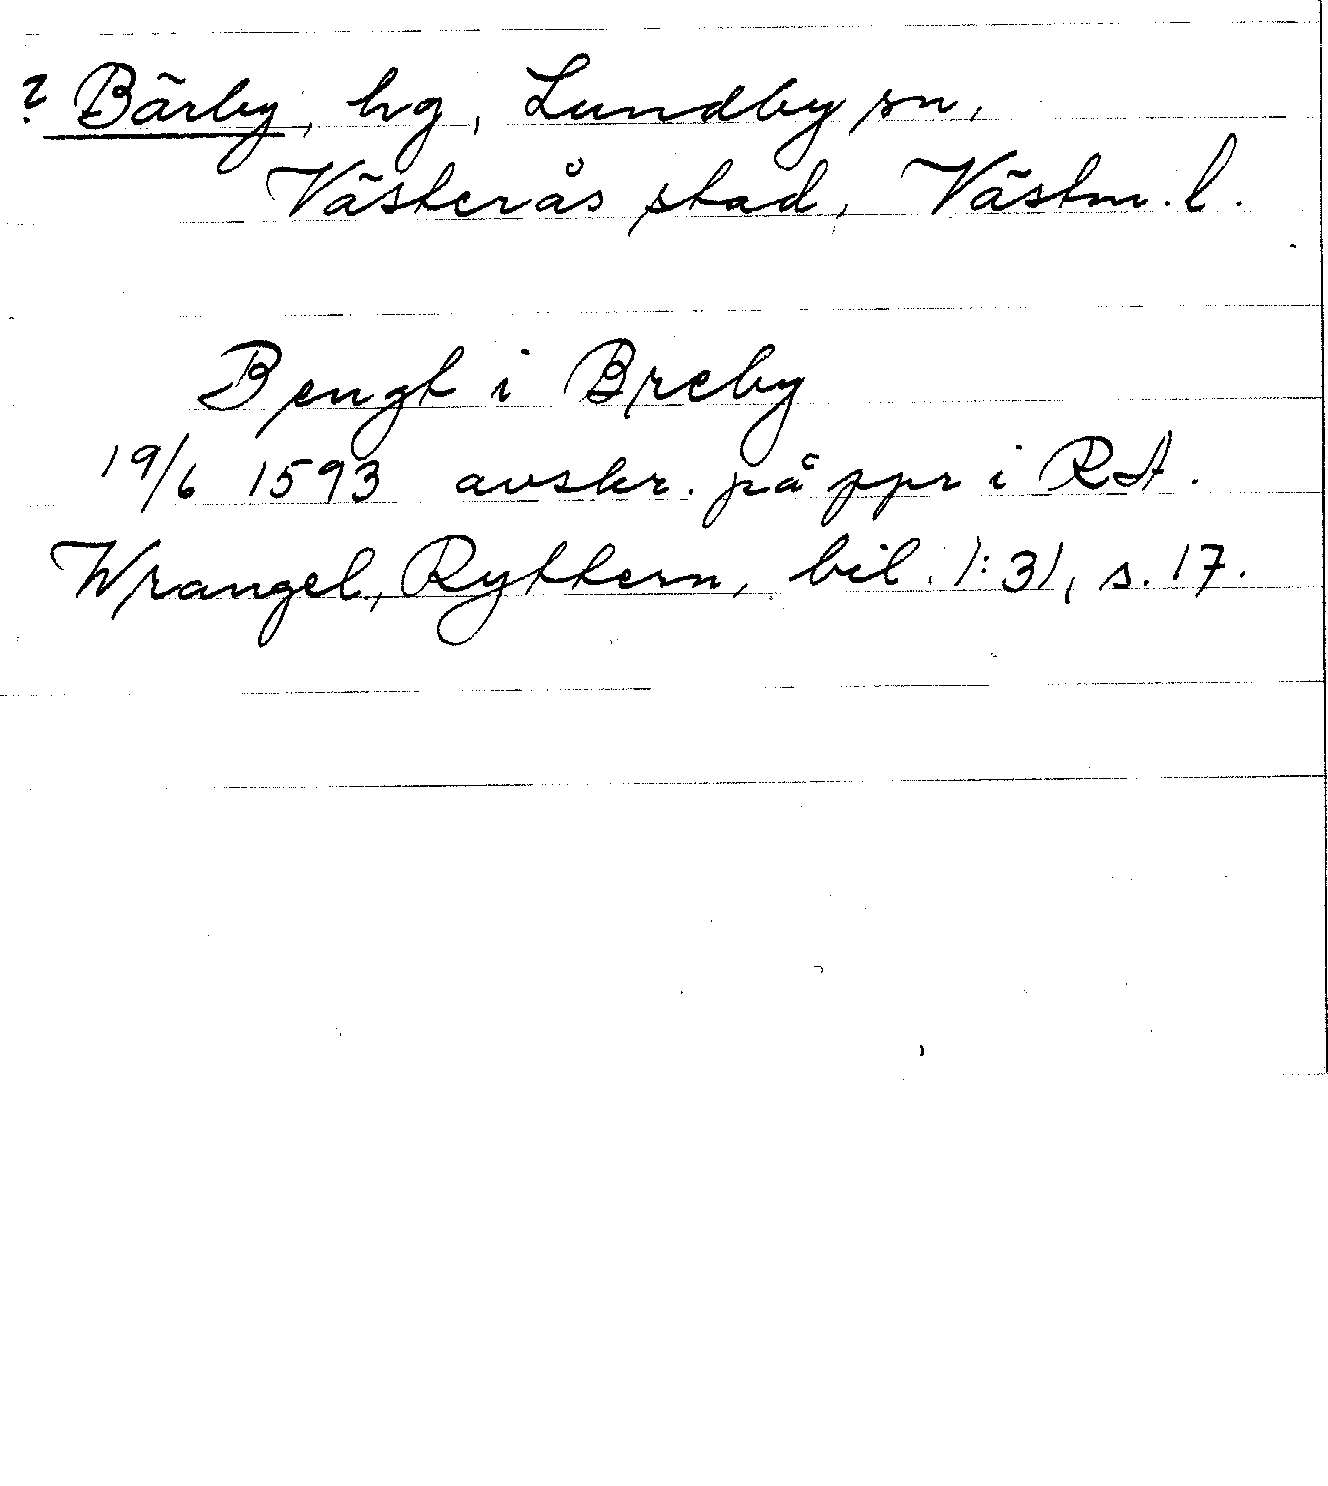 ? Bärby, hg, Lundby sn,
Västerås stad, Västm. l.
Bengt i Breby
19/6 1593 avskr. på ppr i RA.
Wrangel, Ryttern, bil. 1:31, s. 17.